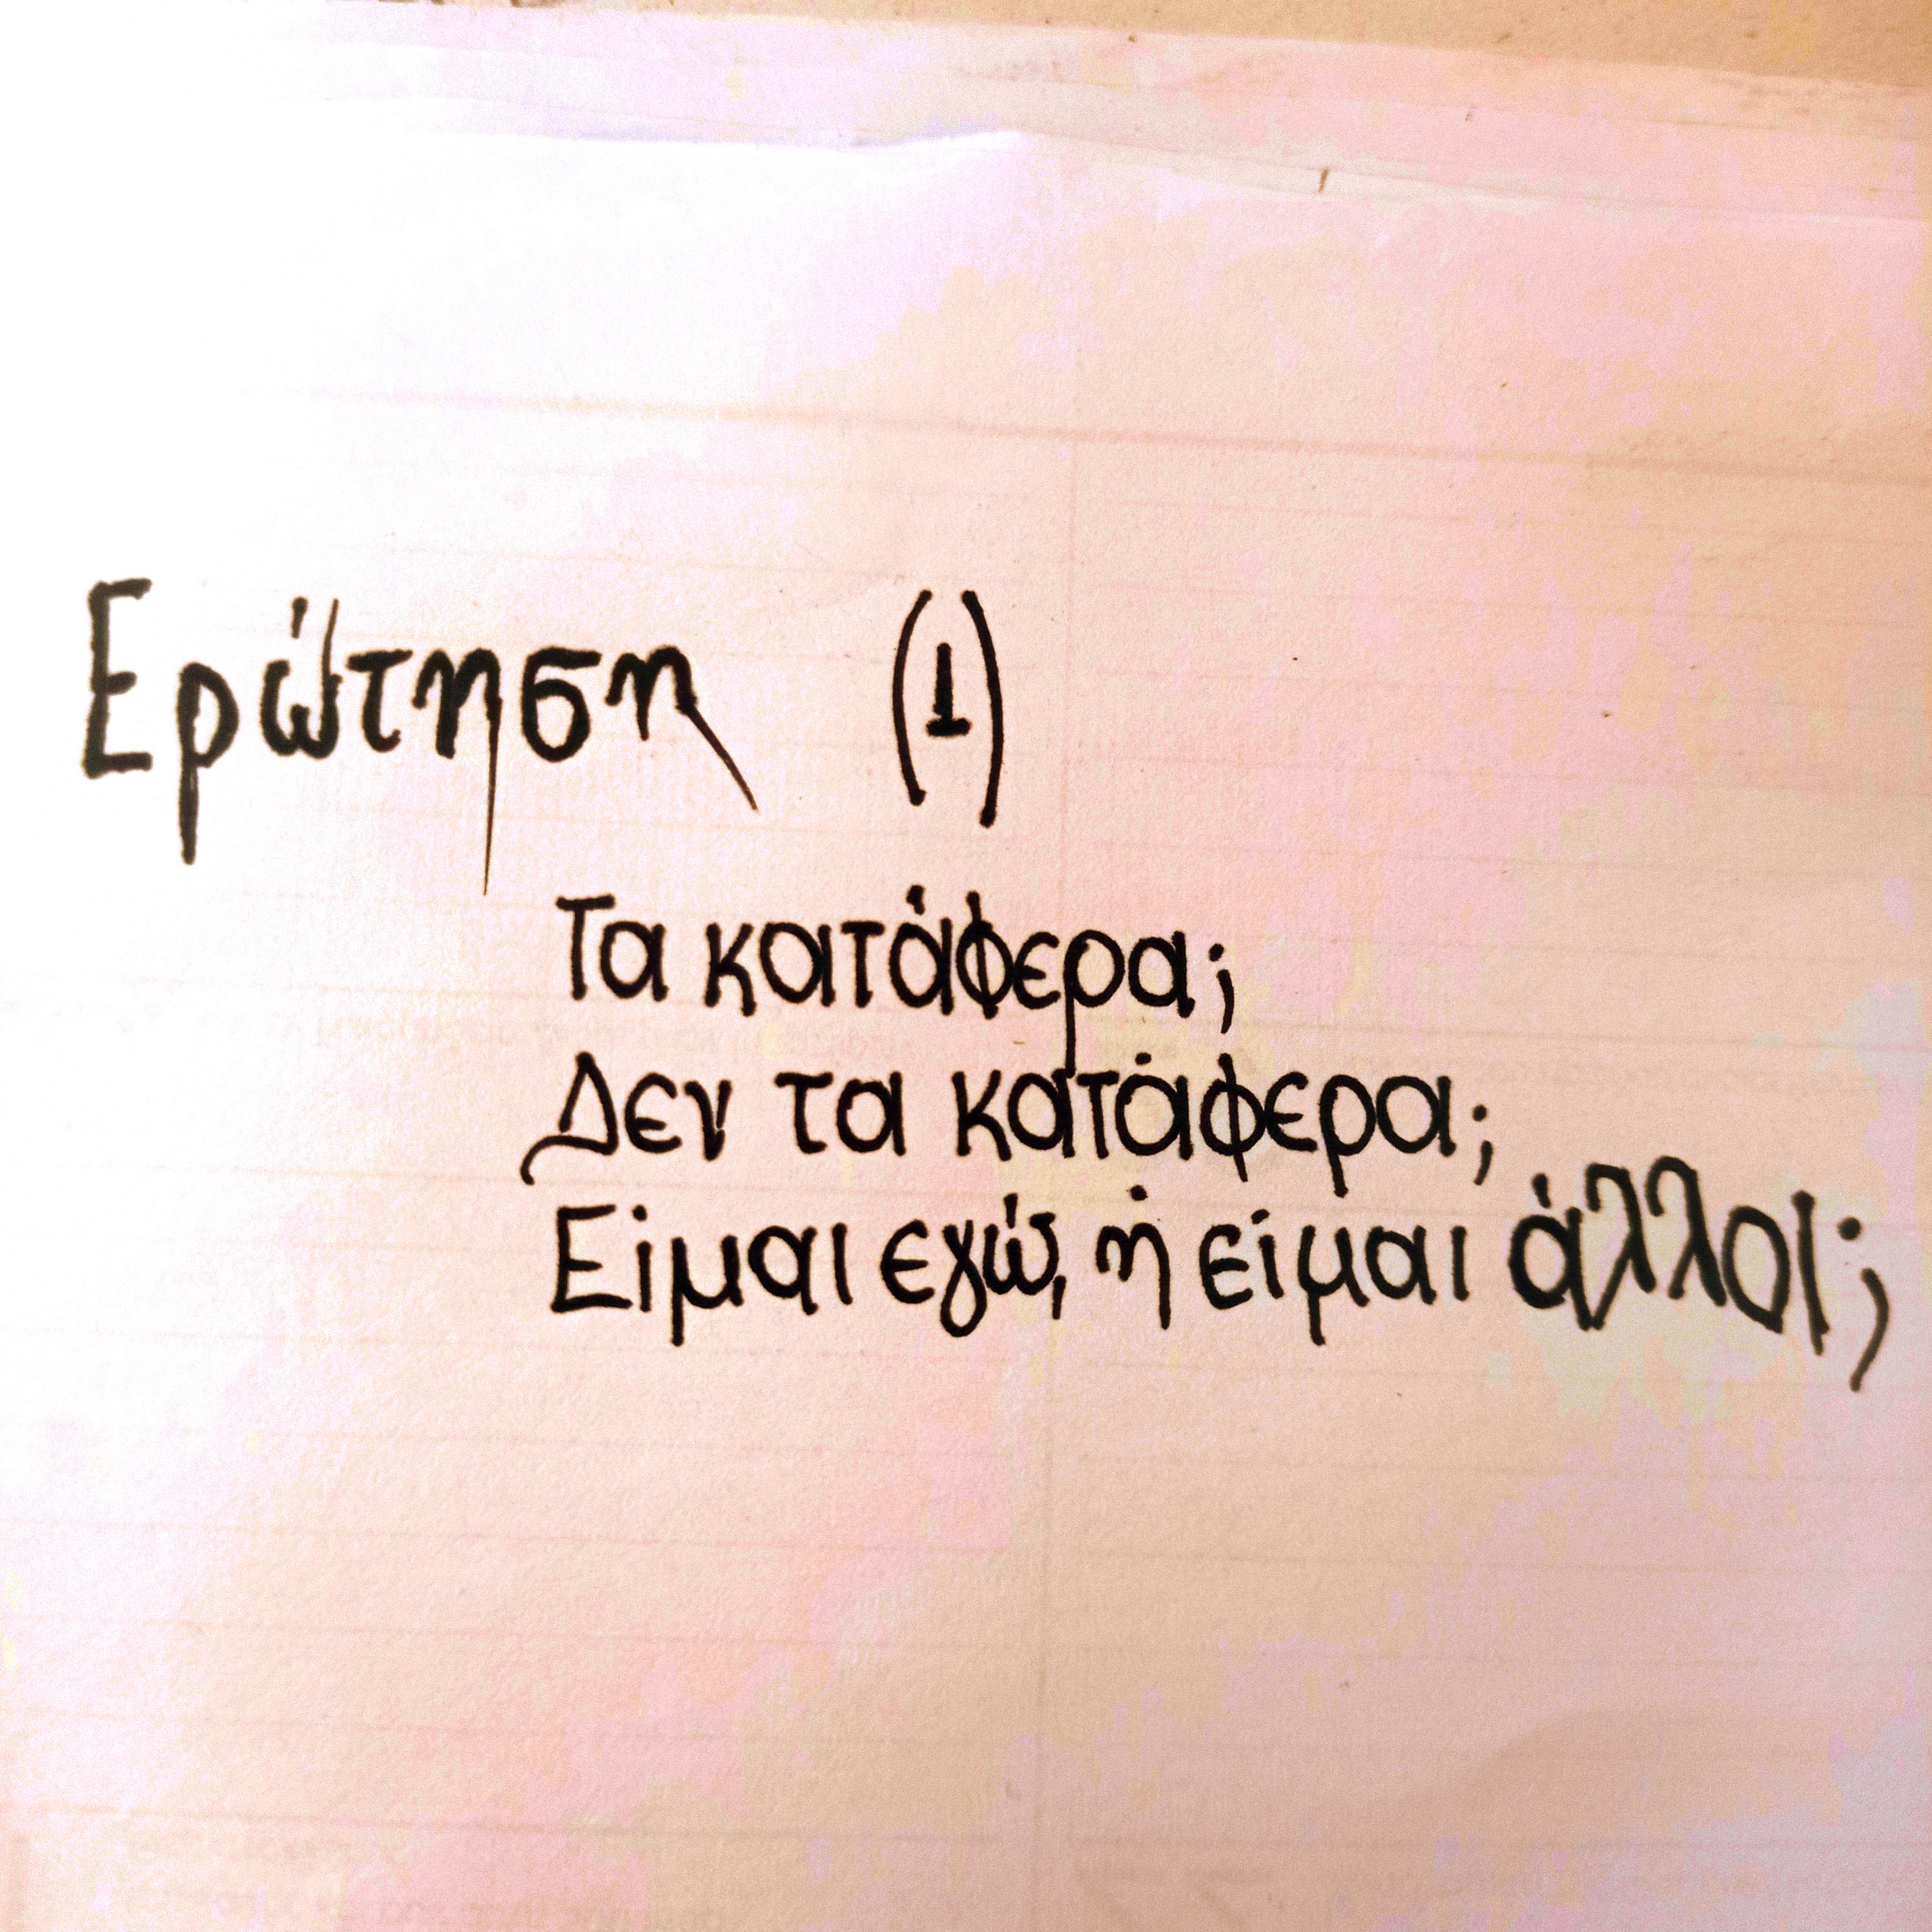 Ερώτηση (1)
Τα κατάφερα;
Δεν τα κατάφερα;
Είμαι εγώ, ή είμαι άλλοι;